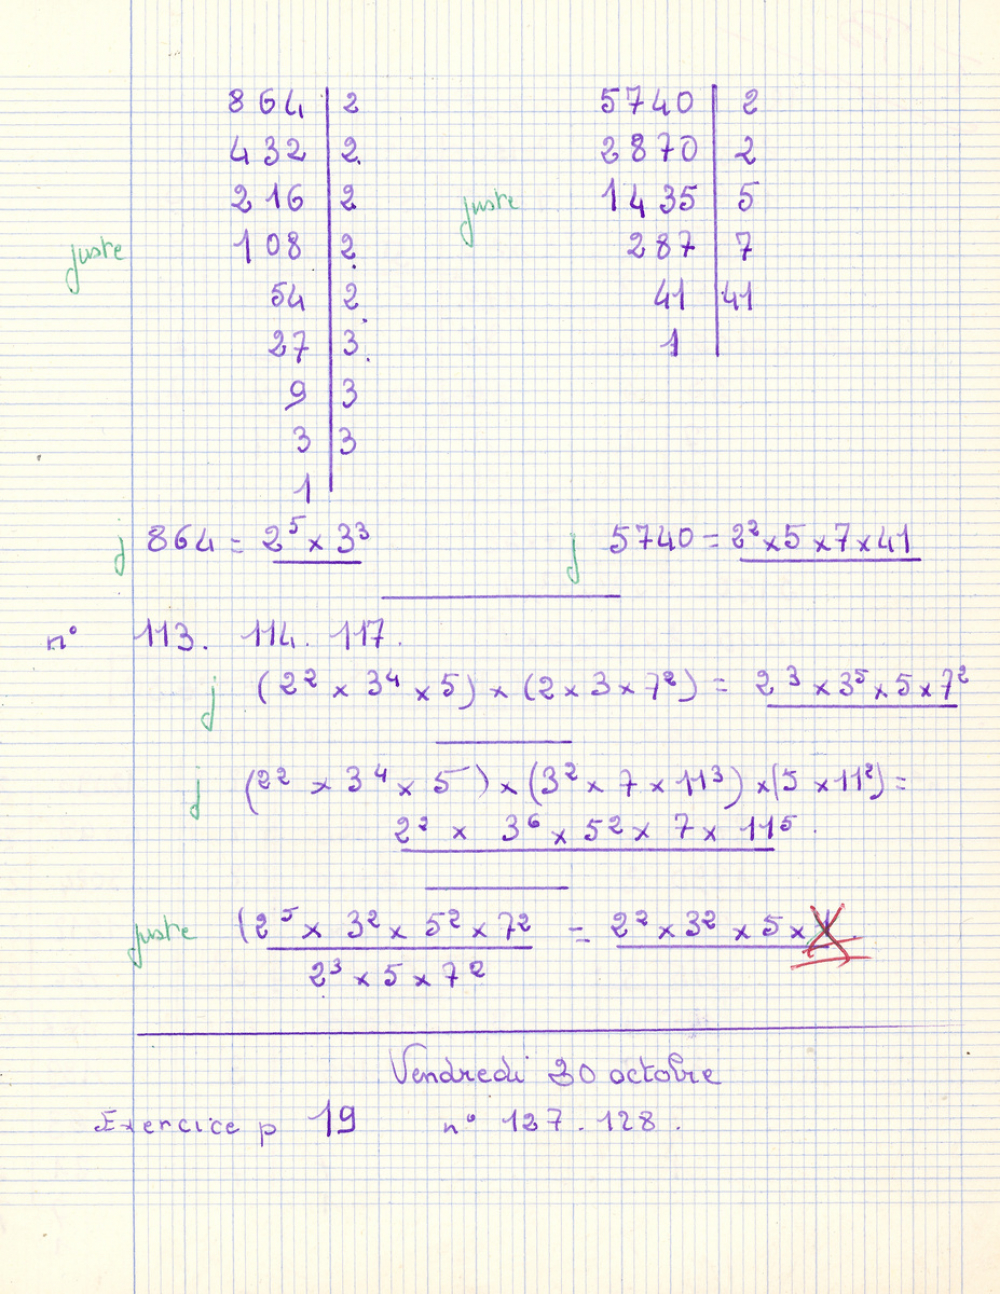 864 | 2
432 | 2
216 | 2
juste 108 | 2
54 | 2
27 | 3
9 | 3
3 | 3
1
5740 | 2
2870 | 2
juste 1435 | 5
287 | 7
41 | 41
1
j 864 = 2⁵ × 3³
j 5740 = 2² × 5 × 7 × 41
n° 113. 114. 117.
j (2² × 3⁴ × 5) × (2 × 3 × 7²) = 2³ × 3⁵ × 5 × 7²
j (2² × 3⁴ × 5) × (3² × 7 × 11³) × (5 × 11²) =
2² × 3⁶ × 5² × 7 × 11⁵.
juste (2⁵ × 3² × 5² × 7² = 2² × 3² × 5 ×
2³ × 5 × 7²
Vendredi 30 octobre
Exercice p 19 n° 127. 128.